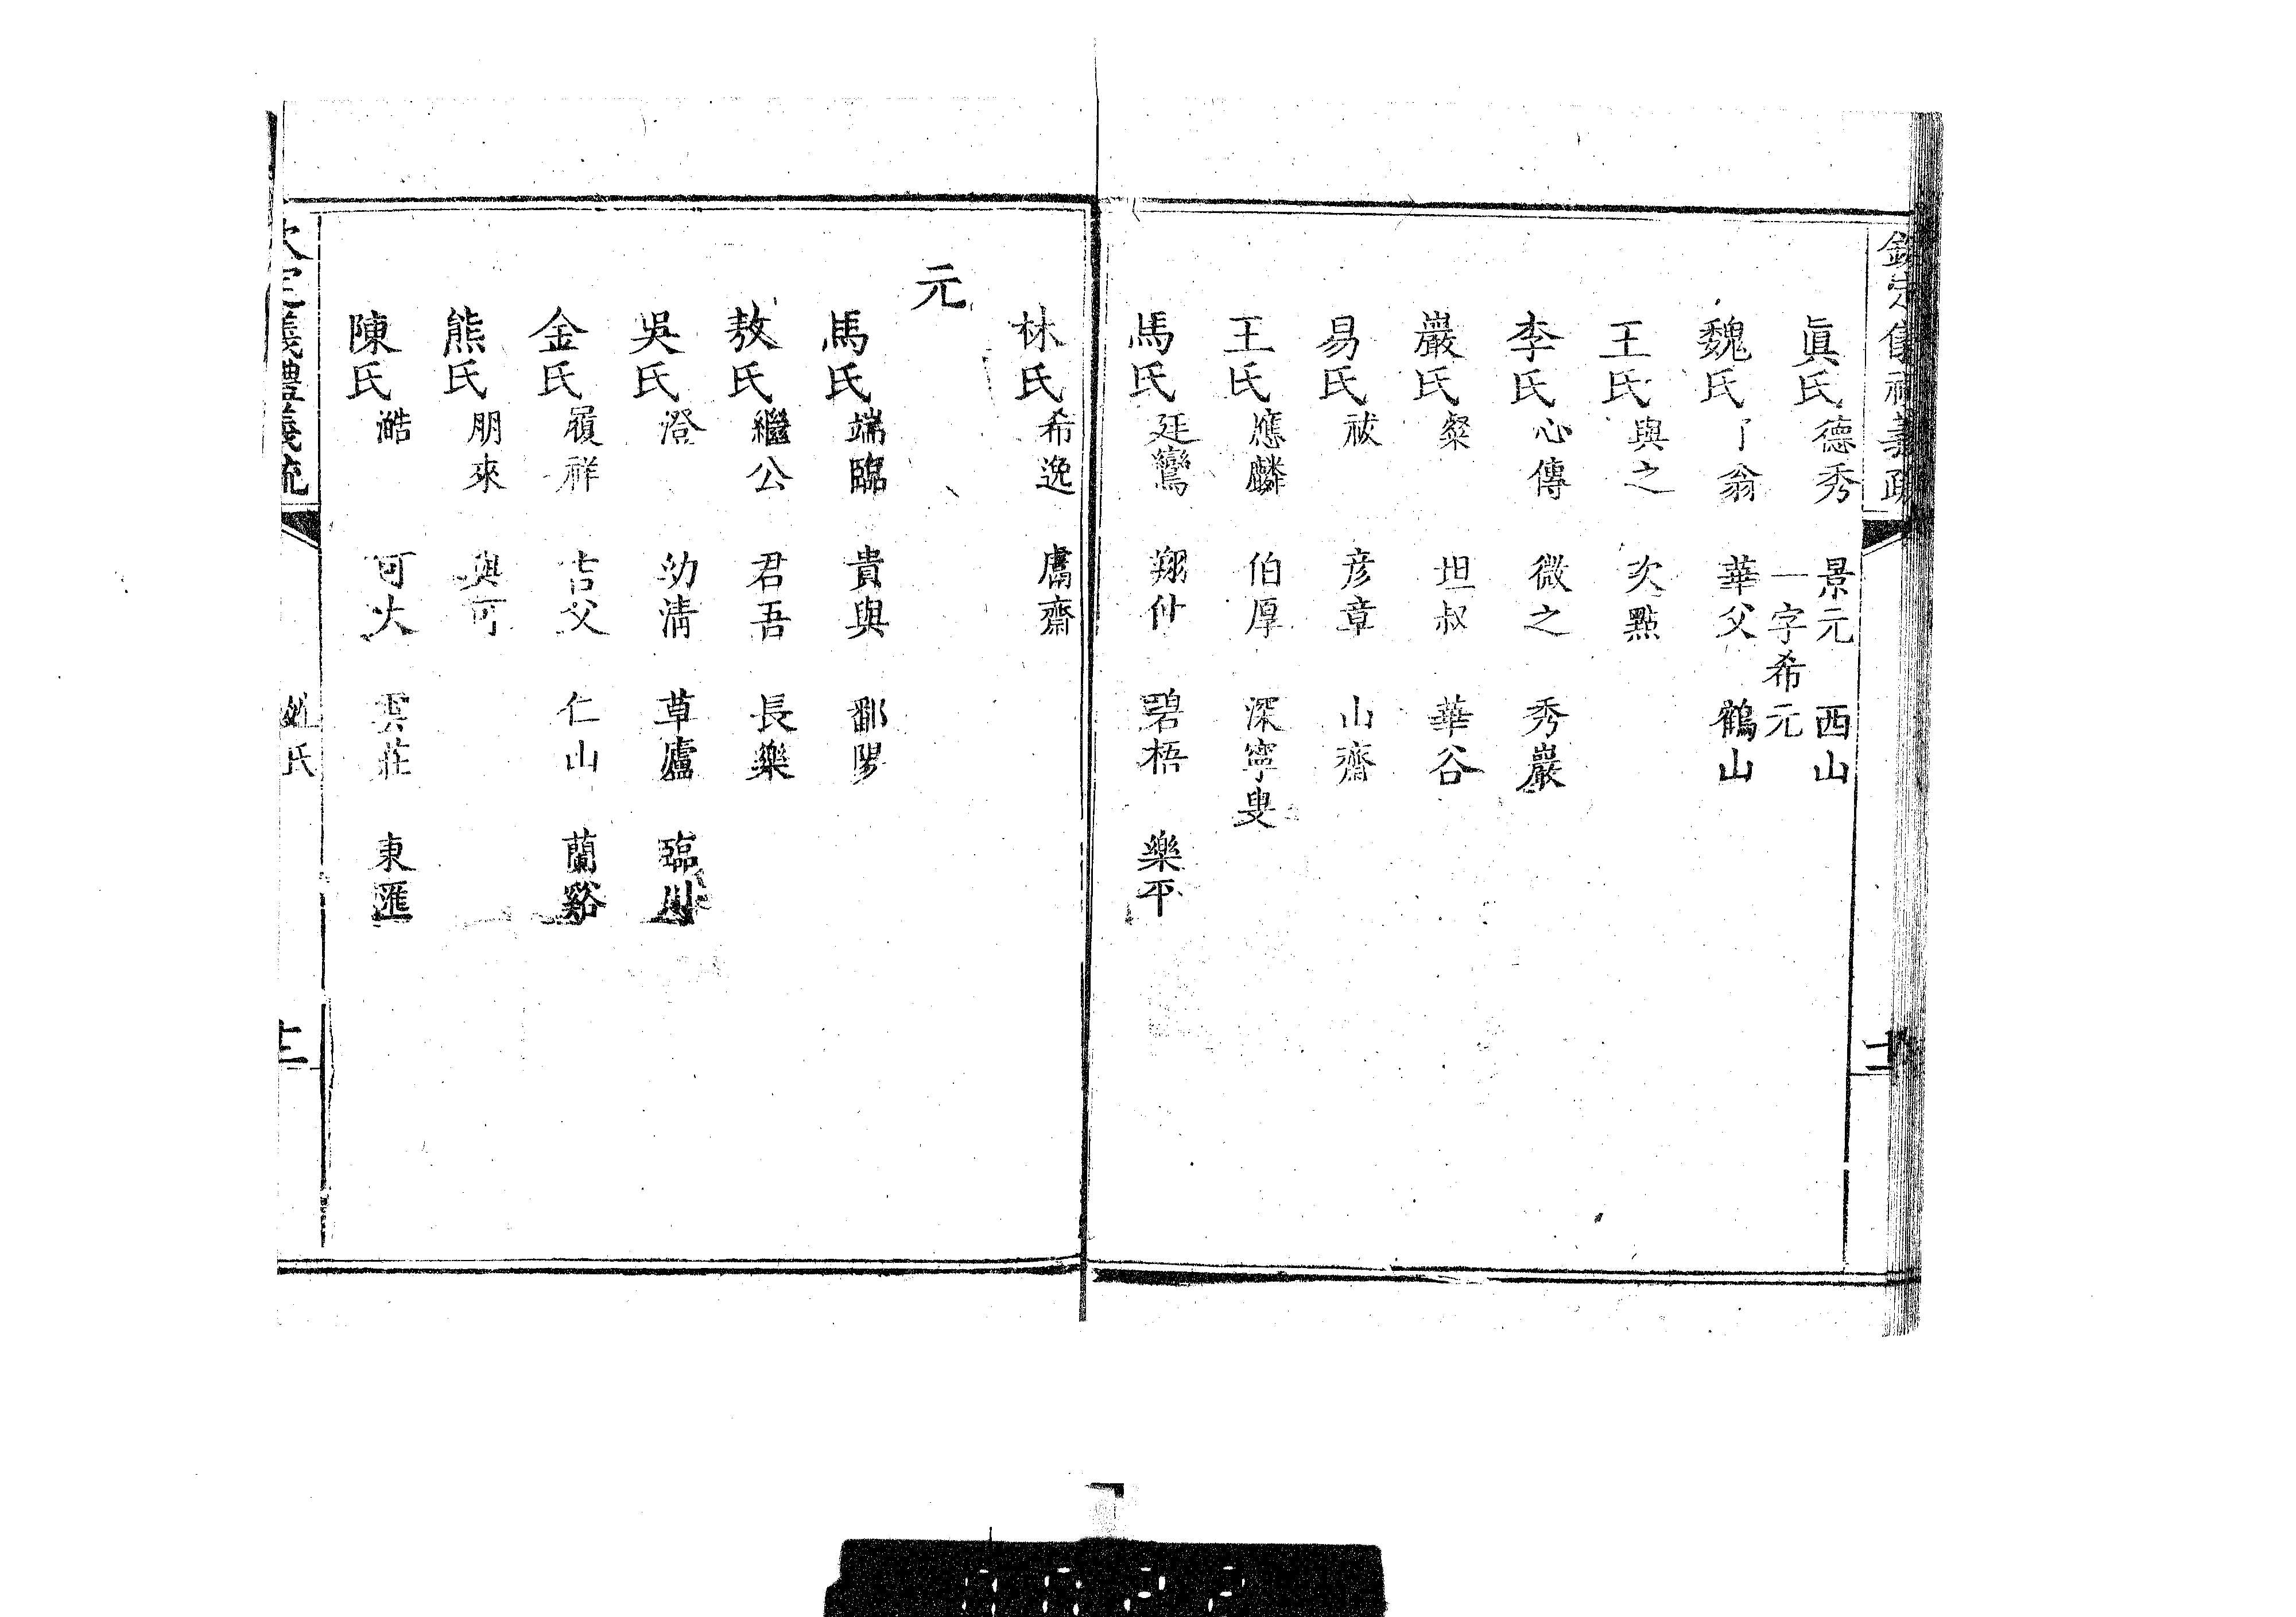 欽定儀禮義疏
眞氏德秀 景元 一字希元 西山
魏氏了翁 華父 鶴山
王氏與之 次點
李氏心傳 微之 秀巖
嚴氏粲 坦叔 華谷
易氏祓 彦章 山齋
王氏應麟 伯厚 深寧叟
馬氏廷鸞 翔仲 碧梧 樂平
林氏希逸 鬳齋
元
馬氏端臨 貴與 鄱陽
敖氏繼公 君吾 長樂
吳氏澄 幼清 草廬 臨川
金氏履祥 吉父 仁山 蘭谿
熊氏朋來 與可
陳氏澔 可大 雲莊 東匯
欽定儀禮義疏 姓氏